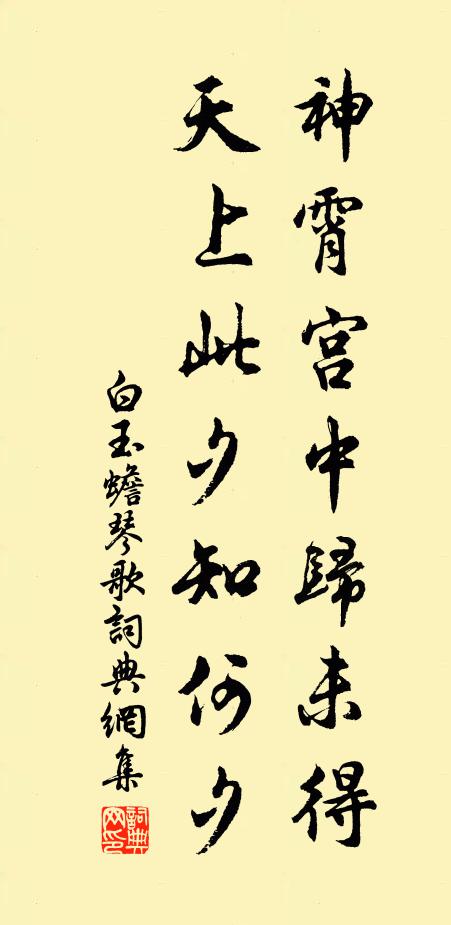 神霄宮中歸未得
天上此夕知何夕
白玉蟾琴歌詞典網集
詞典网印